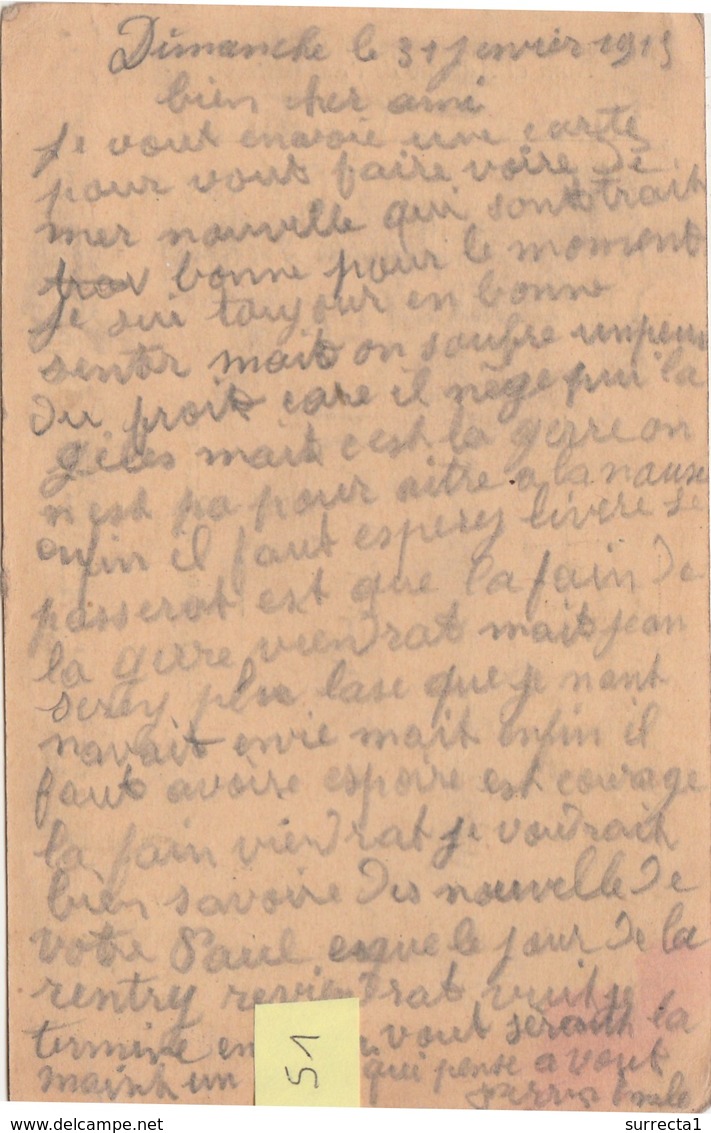 Dimanche le 31 jenvier 1915
bien cher ami
je vout envoie une carte
pour vout faire voire de
mer nouvelle qui sont trait
bonne pour le moment
je sui toujour en bonne
senter mait on soufre unpeux
du froit care il nège pui la
mait c'est la gerre on
n'est pa pour aitre a la nause
enfin il faut esperey livere se
passerat est que la fain de
la gerre viendrat mait jean
serey plu lase que je nant
navait envie mait enfin il
faut avoire espoire est courage
la fain viendrat je voudrait
bien savoire des nouvelle de
votre Paul esque le jour de la
rentry reviendrat vuit je
termine en vout serait la
maint un qui pense a vout
51
surrecta1